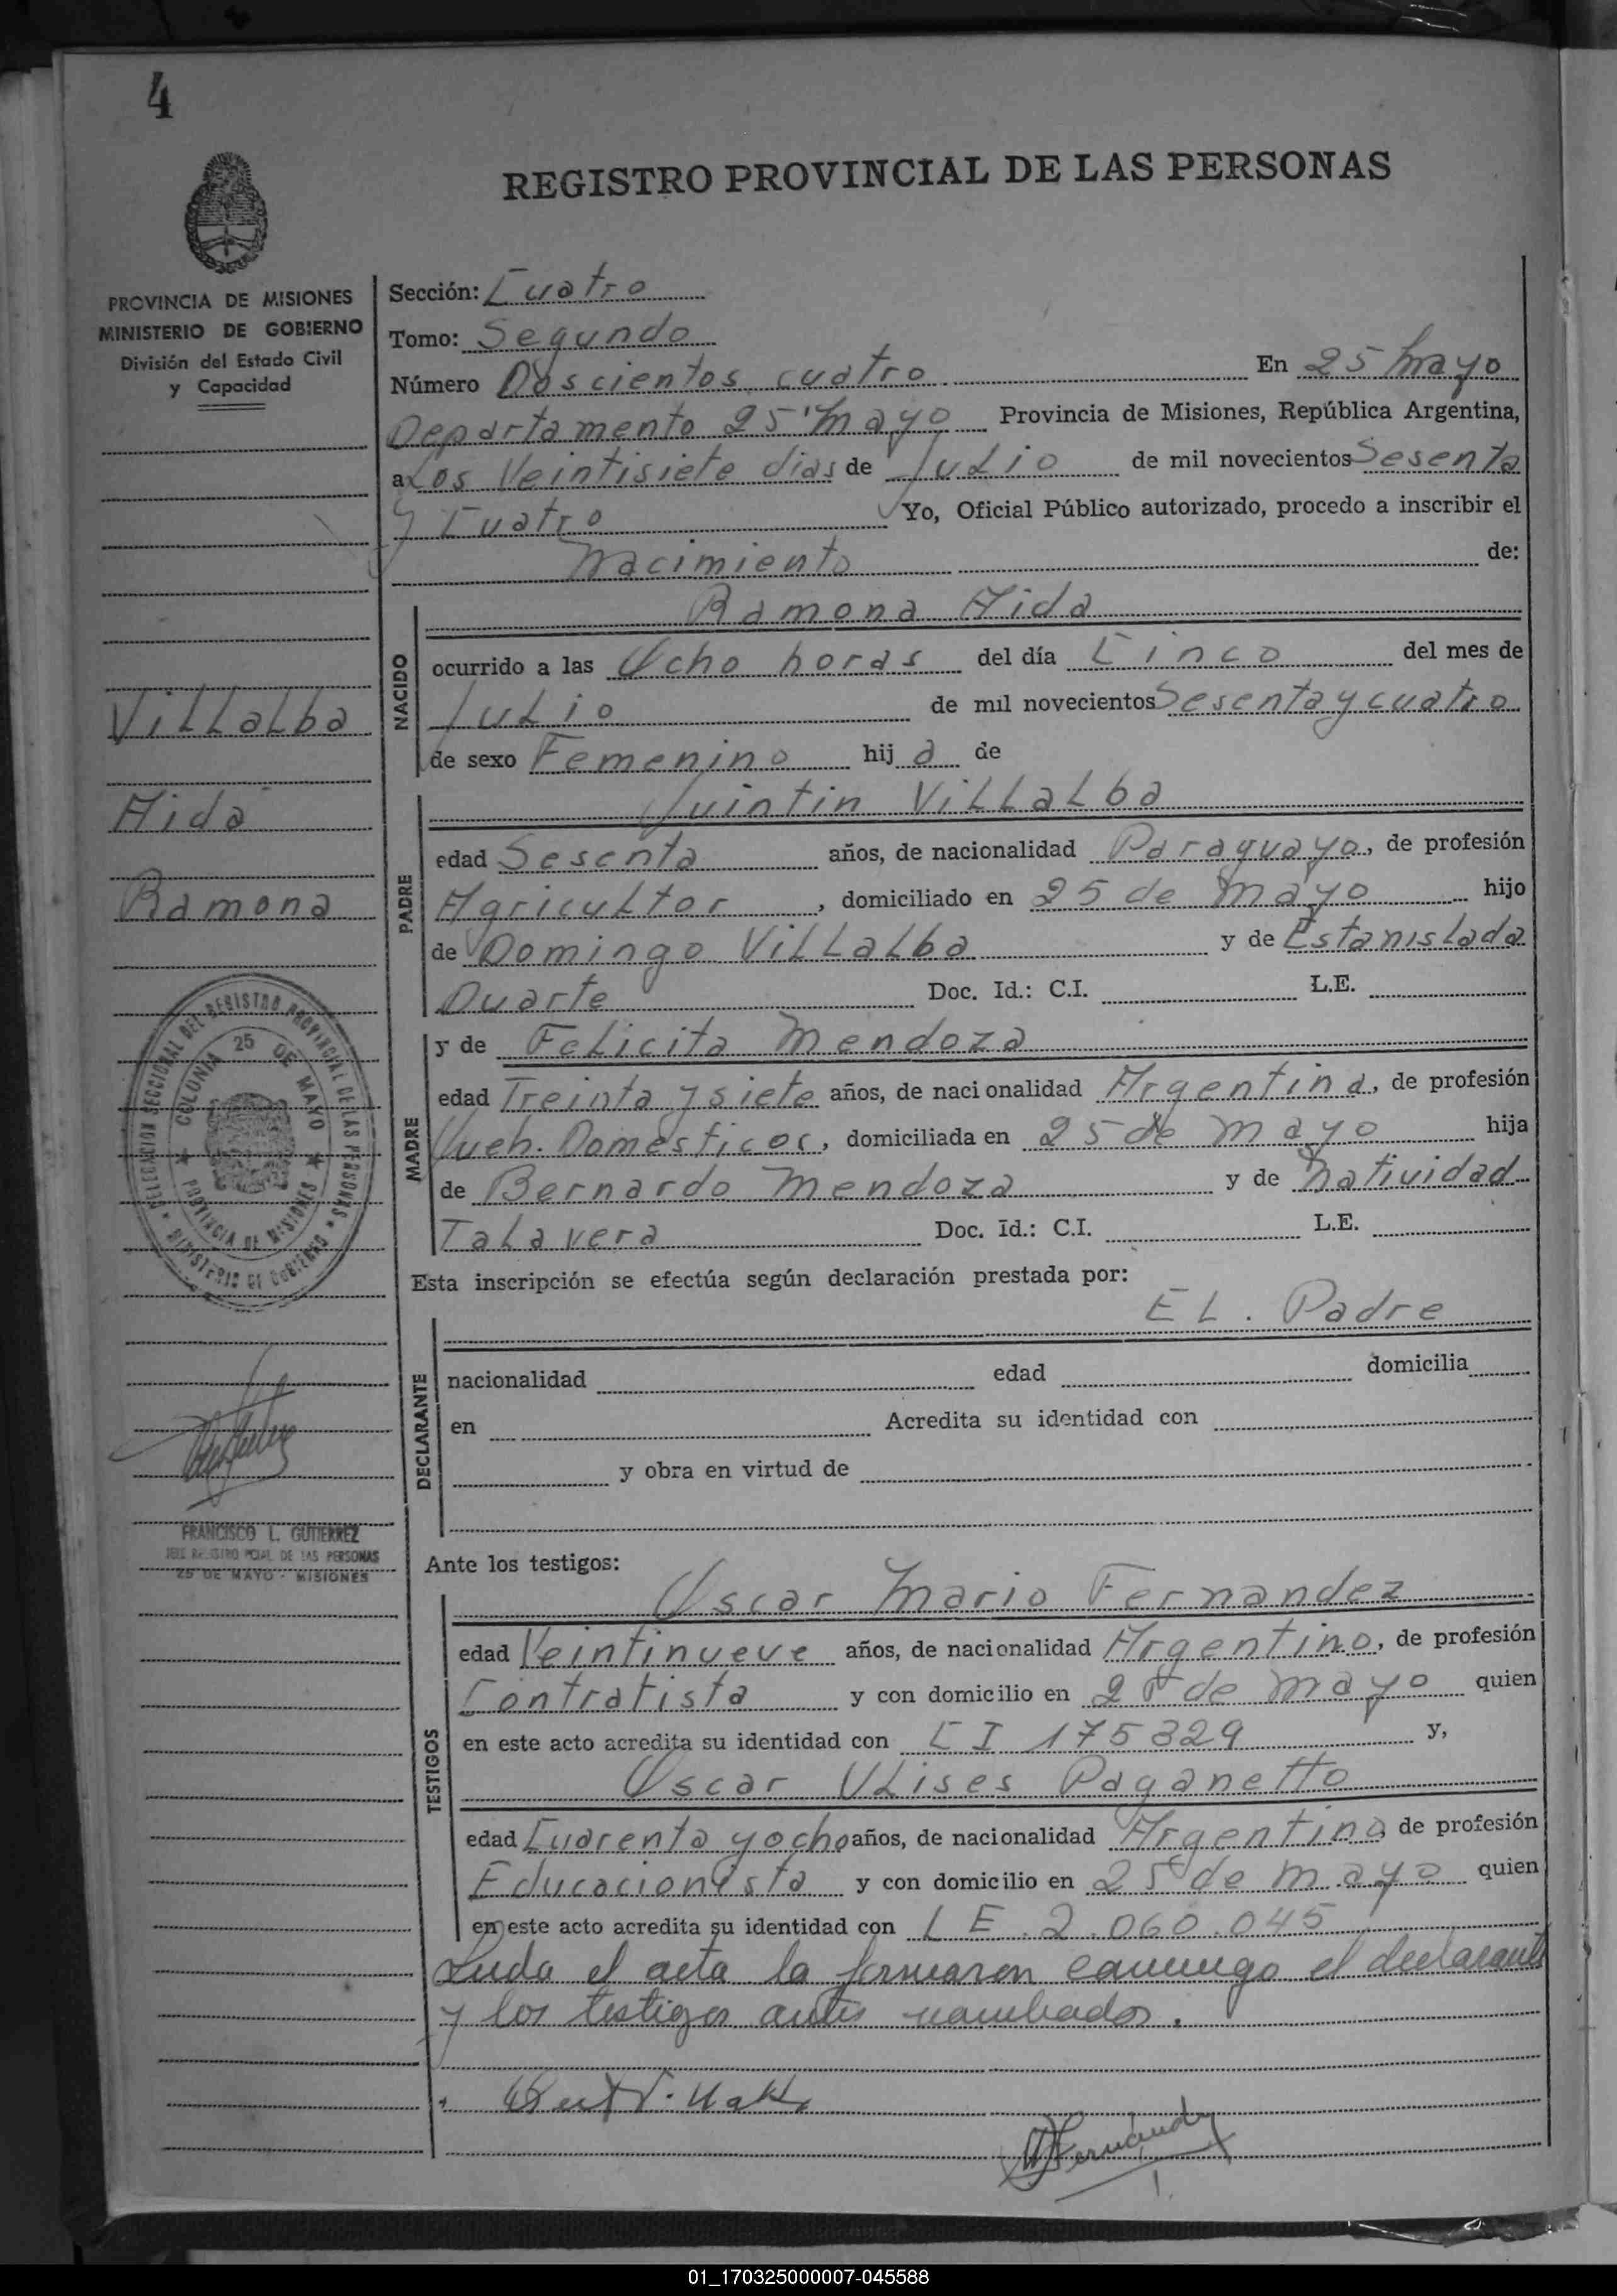 4
REGISTRO PROVINCIAL DE LAS PERSONAS
PROVINCIA DE MISIONES
MINISTERIO DE GOBIERNO
División del Estado Civil
y Capacidad
Villalba
Aida
Ramona
DELEGACION SECCIONAL DEL REGISTRO PROVINCIAL DE LAS PERSONAS
MINISTERIO DE GOBIERNO
COLONIA 25 DE MAYO
PROVINCIA DE MISIONES
FRANCISCO L. GUTIERREZ
JEFE REGISTRO PCIAL DE LAS PERSONAS
25 DE MAYO - MISIONES
Sección: Cuatro
Tomo: Segundo
Número Doscientos cuatro En 25 Mayo
Departamento 25 Mayo Provincia de Misiones, República Argentina,
a Los Veintisiete dias de Julio de mil novecientos Sesenta
y Cuatro Yo, Oficial Público autorizado, procedo a inscribir el
Nacimiento de:
NACIDO
Ramona Aida
ocurrido a las Ocho horas del día Cinco del mes de
Julio de mil novecientos Sesenta y cuatro
de sexo Femenino hij a de
PADRE
Quintin Villalba
edad Sesenta años, de nacionalidad Paraguaya, de profesión
Agricultor, domiciliado en 25 de Mayo hijo
de Domingo Villalba y de Estanislada
Duarte Doc. Id.: C.I. L.E.
MADRE
y de Felicita Mendoza
edad Treinta y siete años, de nacionalidad Argentina, de profesión
Queh. Domesticos, domiciliada en 25 de Mayo hija
de Bernardo Mendoza y de Natividad
Talavera Doc. Id.: C.I. L.E.
Esta inscripción se efectúa según declaración prestada por:
DECLARANTE
EL. Padre
nacionalidad edad domicilia
en Acredita su identidad con
y obra en virtud de
Ante los testigos:
TESTIGOS
Oscar Mario Fernandez
edad Veintinueve años, de nacionalidad Argentino, de profesión
Contratista y con domicilio en 25 de Mayo quien
en este acto acredita su identidad con CI 175329 y,
Oscar Ulises Paganetto
edad Cuarenta y ocho años, de nacionalidad Argentino, de profesión
Educacionista y con domicilio en 25 de Mayo quien
en este acto acredita su identidad con LE. 2.060.045
Leida el acta la firmaron conmigo el declarante
y los testigos antes nombrados.
Fernandez
01_170325000007-045588